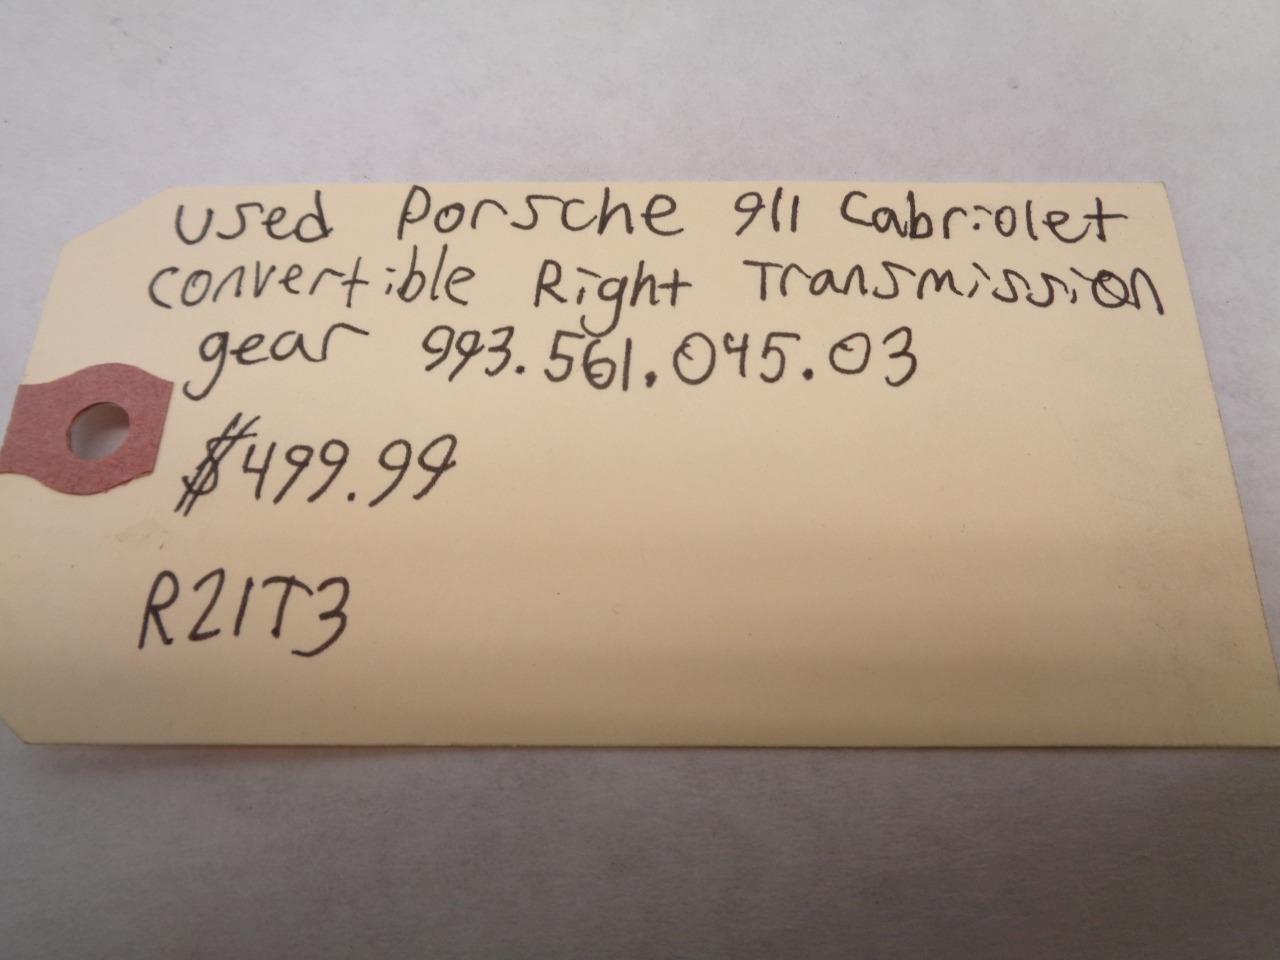 used Porsche 911 Cabriolet
convertible Right Transmission
gear 993.561.045.03
$499.99
R21T3